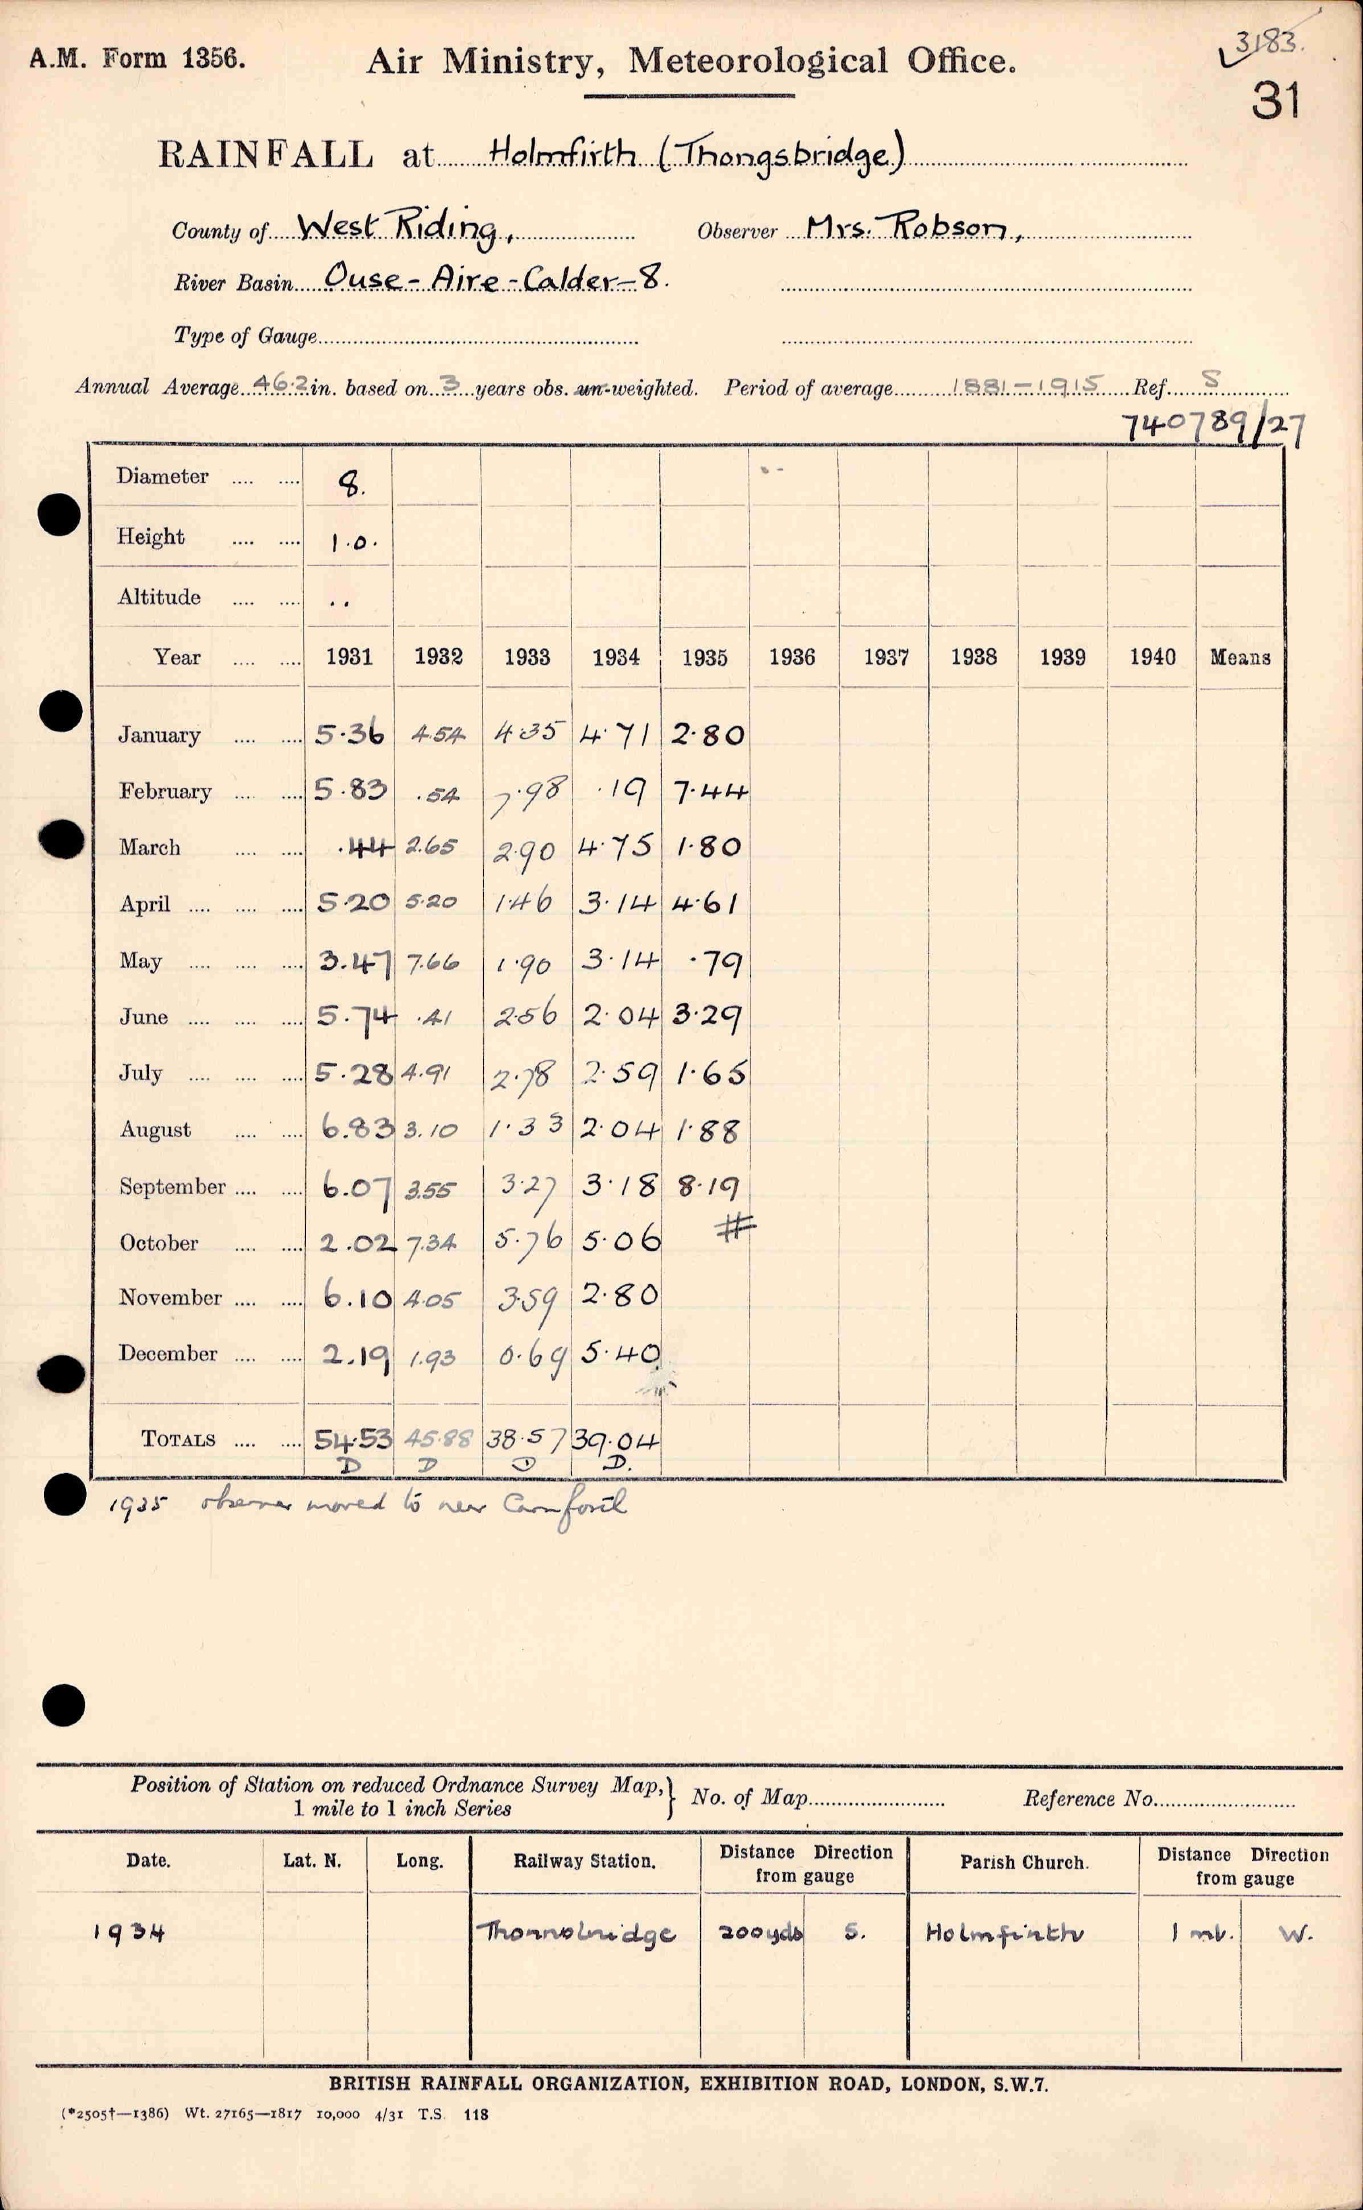 A.M. Form 1356.
Air Ministry, Meteorological Office.
3183.
31
RAINFALL at Holmfirth (Thongsbridge)
County of West Riding, Observer Mrs. Robson,
River Basin Ouse - Aire - Calder - 8.
Type of Gauge
Annual Average 46.2 in. based on 3 years obs. un-weighted. Period of average 1881-1915 Ref. S
740789/27
Diameter 8.
Height 1.0.
Altitude ..
Year 1931 1932 1933 1934 1935 1936 1937 1938 1939 1940 Means
January 5.36 4.54 4.35 4.71 2.80
February 5.83 .54 7.98 .19 7.44
March .44 2.65 2.90 4.75 1.80
April 5.20 5.20 1.46 3.14 4.61
May 3.47 7.66 1.90 3.14 .79
June 5.74 .41 2.56 2.04 3.29
July 5.28 4.91 2.78 2.59 1.65
August 6.83 3.10 1.33 2.04 1.88
September 6.07 3.55 3.27 3.18 8.19
October 2.02 7.34 5.76 5.06 #
November 6.10 4.05 3.59 2.80
December 2.19 1.93 0.69 5.40
TOTALS 54.53 45.88 38.57 39.04
D D D D.
1935 observer moved to near Carnforth
Position of Station on reduced Ordnance Survey Map, } No. of Map Reference No.
1 mile to 1 inch Series
Date. Lat. N. Long. Railway Station. Distance Direction from gauge Parish Church. Distance Direction from gauge
1934 200yds S. Holmfirth 1 ml. W.
BRITISH RAINFALL ORGANIZATION, EXHIBITION ROAD, LONDON, S.W.7.
(*2505†—1386) Wt. 27165—1817 10,000 4/31 T.S. 118